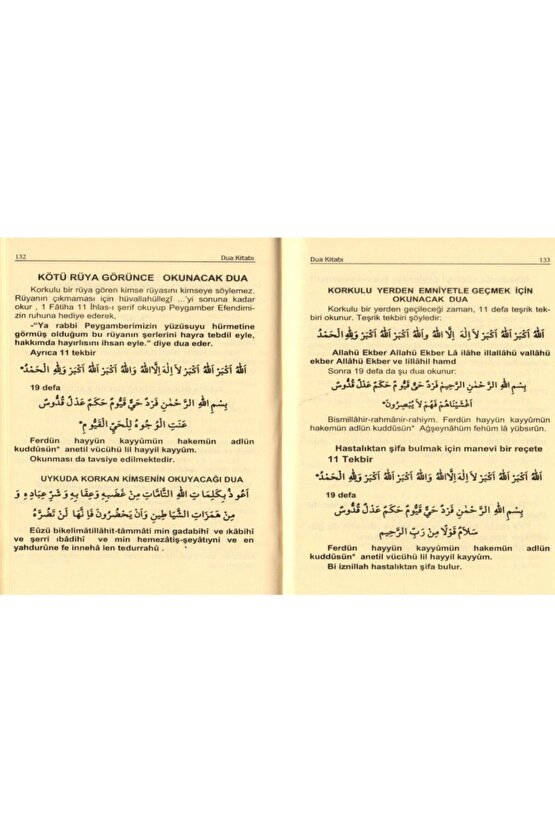 132
Dua Kitabı
KÖTÜ RÜYA GÖRÜNCE OKUNACAK DUA
Korkulu bir rüya gören kimse rüyasını kimseye söylemez.
Rüyanın çıkmaması için hüvallahüllezî ...'yi sonuna kadar
okur , 1 Fâtiha 11 İhlas-ı şerif okuyup Peygamber Efendimi-
zin ruhuna hediye ederek,
-"Ya rabbi Peygamberimizin yüzüsuyu hürmetine
görmüş olduğum bu rüyanın şerlerini hayra tebdil eyle,
hakkımda hayırlısını ihsan eyle." diye dua eder.
Ayrıca 11 tekbir
اَللهُ اَكْبَرُ اَللهُ اَكْبَرُ لاَ اِلٰهَ اِلاَّ اللهُ وَاللهُ اَكْبَرُ اَللهُ اَكْبَرُ وَلِلّٰهِ الْحَمْدُ*
19 defa
بِسْمِ اللهِ الرَّحْمٰنِ فَرْدٌ حَيٌّ قَيُّومٌ حَكَمٌ عَدْلٌ قُدُّوسٌ
عَنَتِ الْوُجُوهُ لِلْحَيِّ الْقَيُّومِ*
Ferdün hayyün kayyûmün hakemün adlün
kuddûsün* anetil vücühü lil hayyil kayyûm.
Okunması da tavsiye edilmektedir.
UYKUDA KORKAN KİMSENİN OKUYACAĞI DUA
اَعُوذُ بِكَلِمَاتِ اللهِ التَّامَّاتِ مِنْ غَضَبِهِ وَعِقَابِهِ وَشَرِّ عِبَادِهِ وَ
مِنْ هَمَزَاتِ الشَّيَاطِينِ وَاَنْ يَحْضُرُونَ فَاِنَّهَا لَنْ تَضُرَّهُ
Eûzü bikelimâtillâhit-tâmmâti min gadabihî ve ıkâbihî
ve şerri ıbâdihî ve min hemezâtiş-şeyâtıyni ve en
yahdurûne fe innehâ len tedurrahû .
Dua Kitabı
133
KORKULU YERDEN EMNİYETLE GEÇMEK İÇİN
OKUNACAK DUA
Korkulu bir yerden geçileceği zaman, 11 defa teşrik tek-
biri okunur. Teşrik tekbiri şöyledir:
اَللهُ اَكْبَرُ اَللهُ اَكْبَرُ لاَ اِلٰهَ اِلاَّ اللهُ وَاللهُ اَكْبَرُ اَللهُ اَكْبَرُ وَلِلّٰهِ الْحَمْدُ
Allahü Ekber Allahü Ekber Lâ ilâhe illallâhü vallâhü
ekber Allâhü Ekber ve lillâhil hamd
Sonra 19 defa da şu dua okunur:
بِسْمِ اللهِ الرَّحْمٰنِ الرَّحِيمِ فَرْدٌ حَيٌّ قَيُّومٌ حَكَمٌ عَدْلٌ قُدُّوسٌ
اَغْشَيْنَاهُمْ فَهُمْ لاَ يُبْصِرُونَ*
Bismillâhir-rahmânir-rahiym. Ferdün hayyün kayyûmün
hakemün adlün kuddûsün* Ağşeynâhüm fehüm lâ yübsırûn.
Hastalıktan şifa bulmak için manevi bir reçete
11 Tekbir
اَللهُ اَكْبَرُ اَللهُ اَكْبَرُ لاَ اِلٰهَ اِلاَّ اللهُ وَاللهُ اَكْبَرُ اَللهُ اَكْبَرُ وَلِلّٰهِ الْحَمْدُ*
19 defa
بِسْمِ اللهِ الرَّحْمٰنِ فَرْدٌ حَيٌّ قَيُّومٌ حَكَمٌ عَدْلٌ قُدُّوسٌ
سَلاَمٌ قَوْلاً مِنْ رَبٍّ الرَّحِيمِ
Ferdün hayyün kayyûmün hakemün adlün
kuddûsün* anetil vücühü lil hayyil kayyûm.
Bi iznillah hastalıktan şifa bulur.